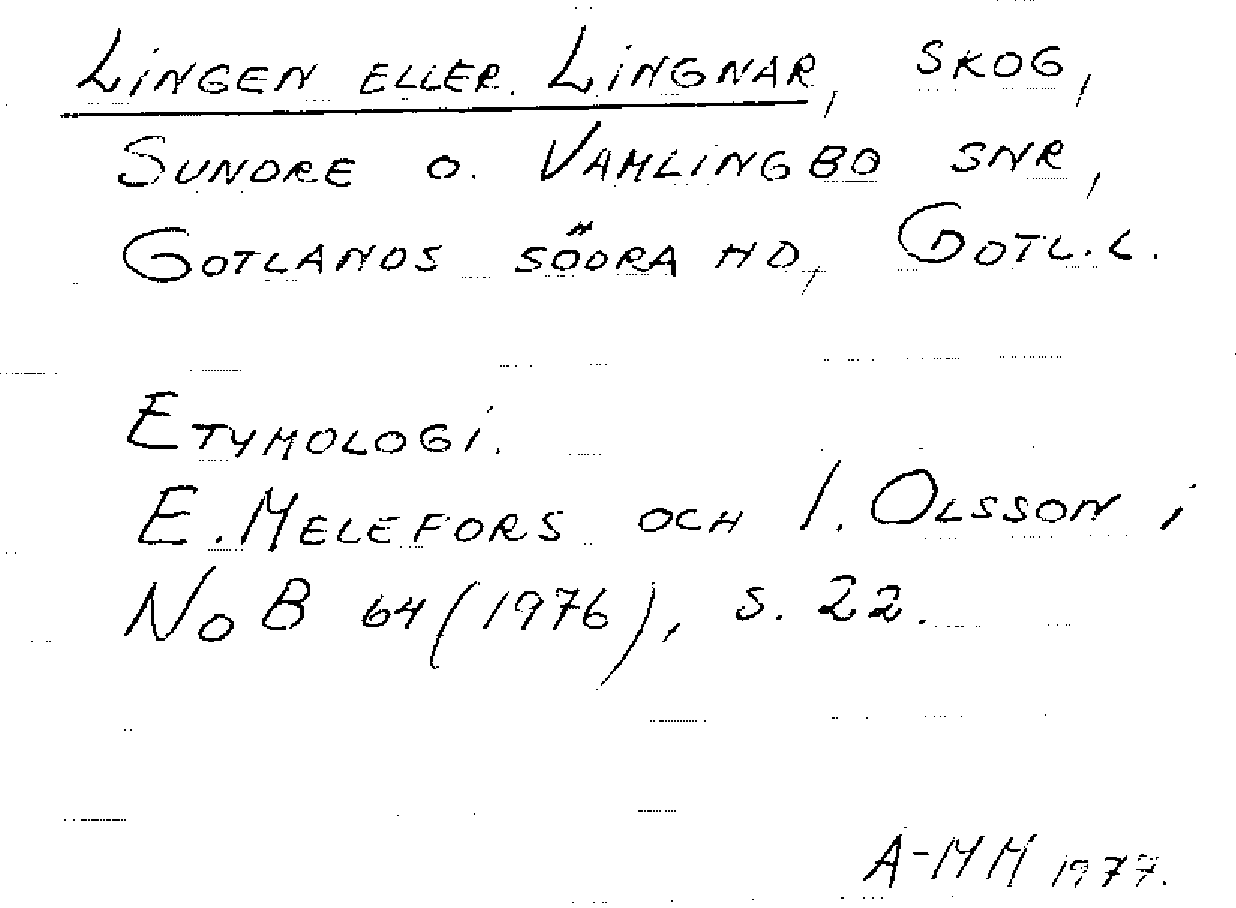 LINGEN ELLER LINGNAR, SKOG,
SUNDRE O. VAMLINGBO SNR,
GOTLANDS SÖDRA HD, GOTL.L.
ETYMOLOGI.
E. MELEFORS OCH I. OLSSON i
NoB 64 (1976), S. 22.
A-MM 1977.